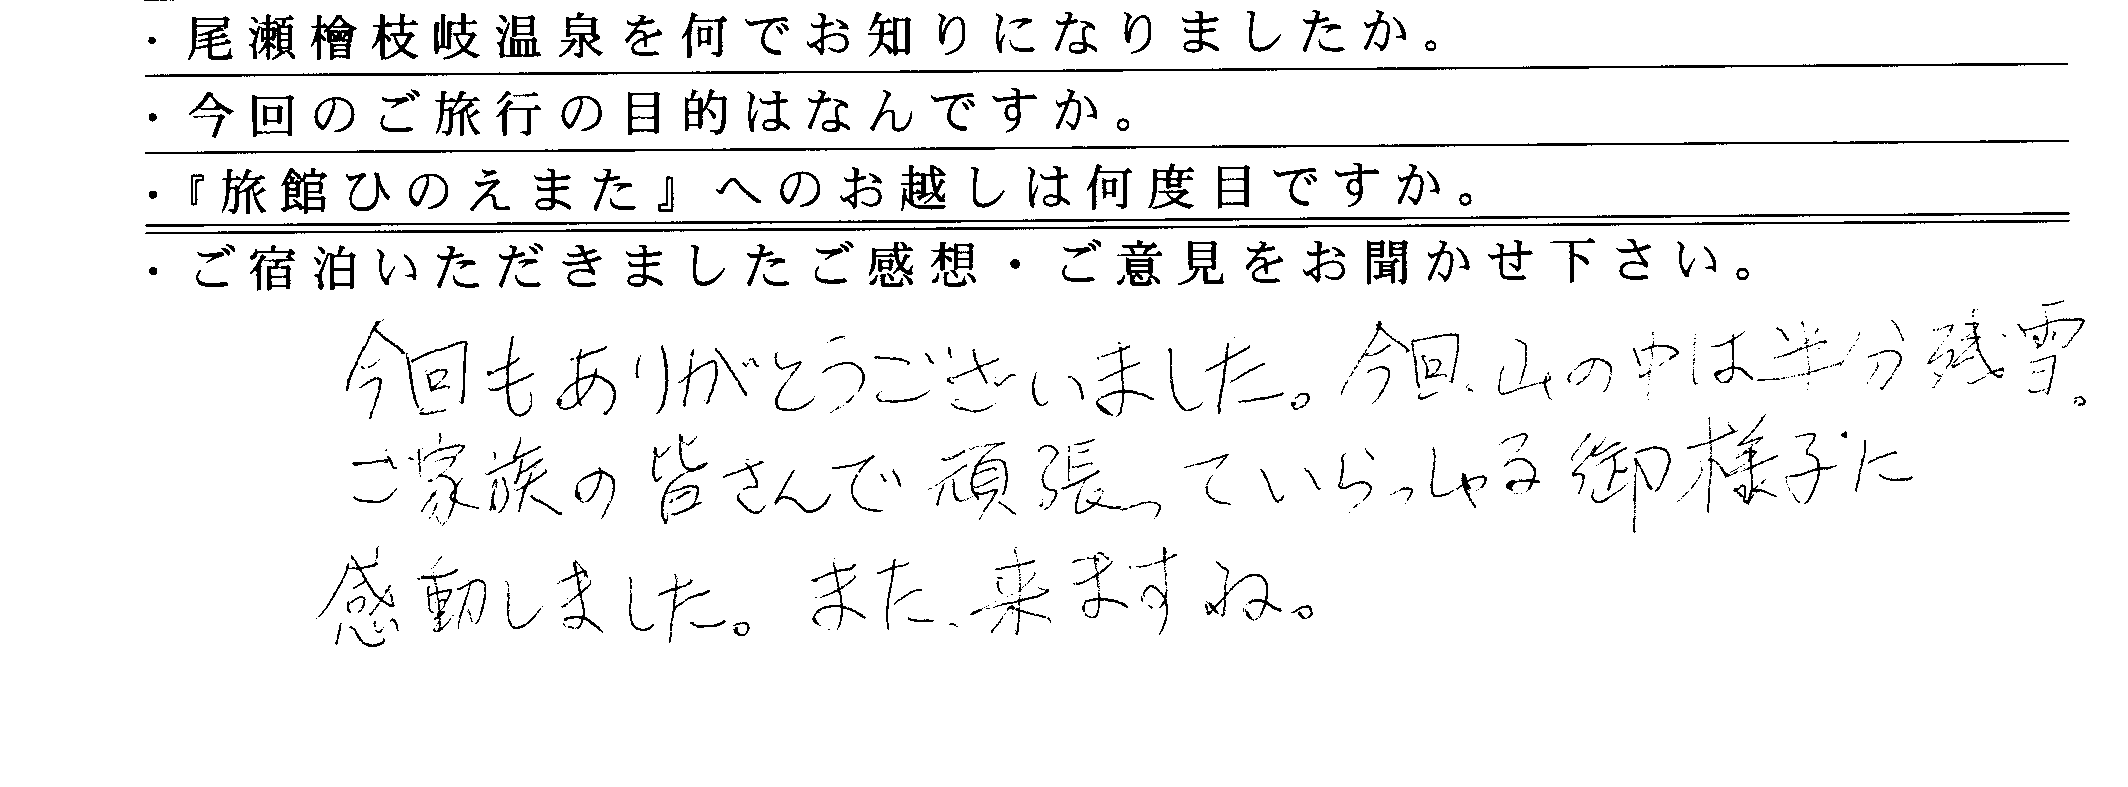 ・尾瀬檜枝岐温泉を何でお知りになりましたか。
・今回のご旅行の目的はなんですか。
・『旅館ひのえまた』へのお越しは何度目ですか。
・ご宿泊いただきましたご感想・ご意見をお聞かせ下さい。
今回もありがとうございました。今回、山の中は半分残雪。
ご家族の皆さんで頑張っていらっしゃる御様子に
感動しました。また、来ますね。